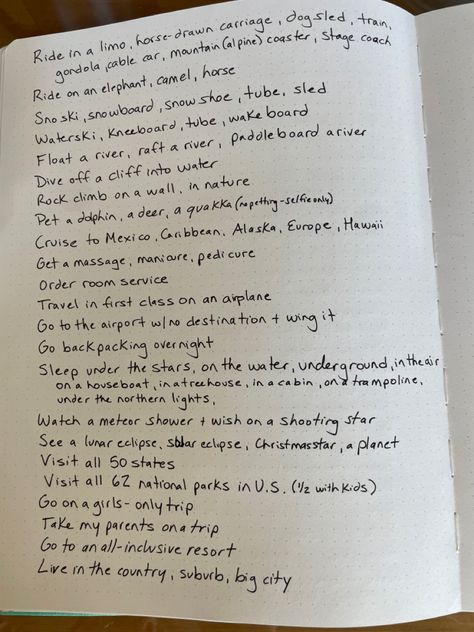 Ride in a limo, horse-drawn carriage, dogsled, train,
gondola, cable car, mountain (alpine) coaster, stage coach
Ride on an elephant, camel, horse
Sno ski, snowboard, snow shoe, tube, sled
Waterski, Kneeboard, tube, wakeboard
Float a river, raft a river, paddleboard a river
Dive off a cliff into water
Rock climb on a wall, in nature
Pet a dolphin, a deer, a quakka (no petting - selfie only)
Cruise to Mexico, Caribbean, Alaska, Europe, Hawaii
Get a massage, manicure, pedicure
Order room service
Travel in first class on an airplane
Go to the airport w/no destination + wing it
Go backpacking overnight
Sleep under the stars, on the water, underground, in the air
on a houseboat, in a treehouse, in a cabin, on a trampoline,
under the northern lights,
Watch a meteor shower + wish on a shooting star
See a lunar eclipse, solar eclipse, Christmas star, a planet
Visit all 50 states
Visit all 62 national parks in U.S. (1/2 with kids)
Go on a girls-only trip
Take my parents on a trip
Go to an all-inclusive resort
Live in the country, suburb, big city